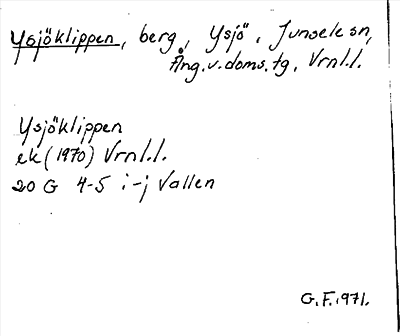 Ysjöklippen, berg, Ysjö, Junsele sn,
Ång.v.doms.tg, Vrnl.l.
Ysjöklippen
ek (1970) Vrnl.l.
20 G 4-5 i-j Vallen
G.F. 1971.